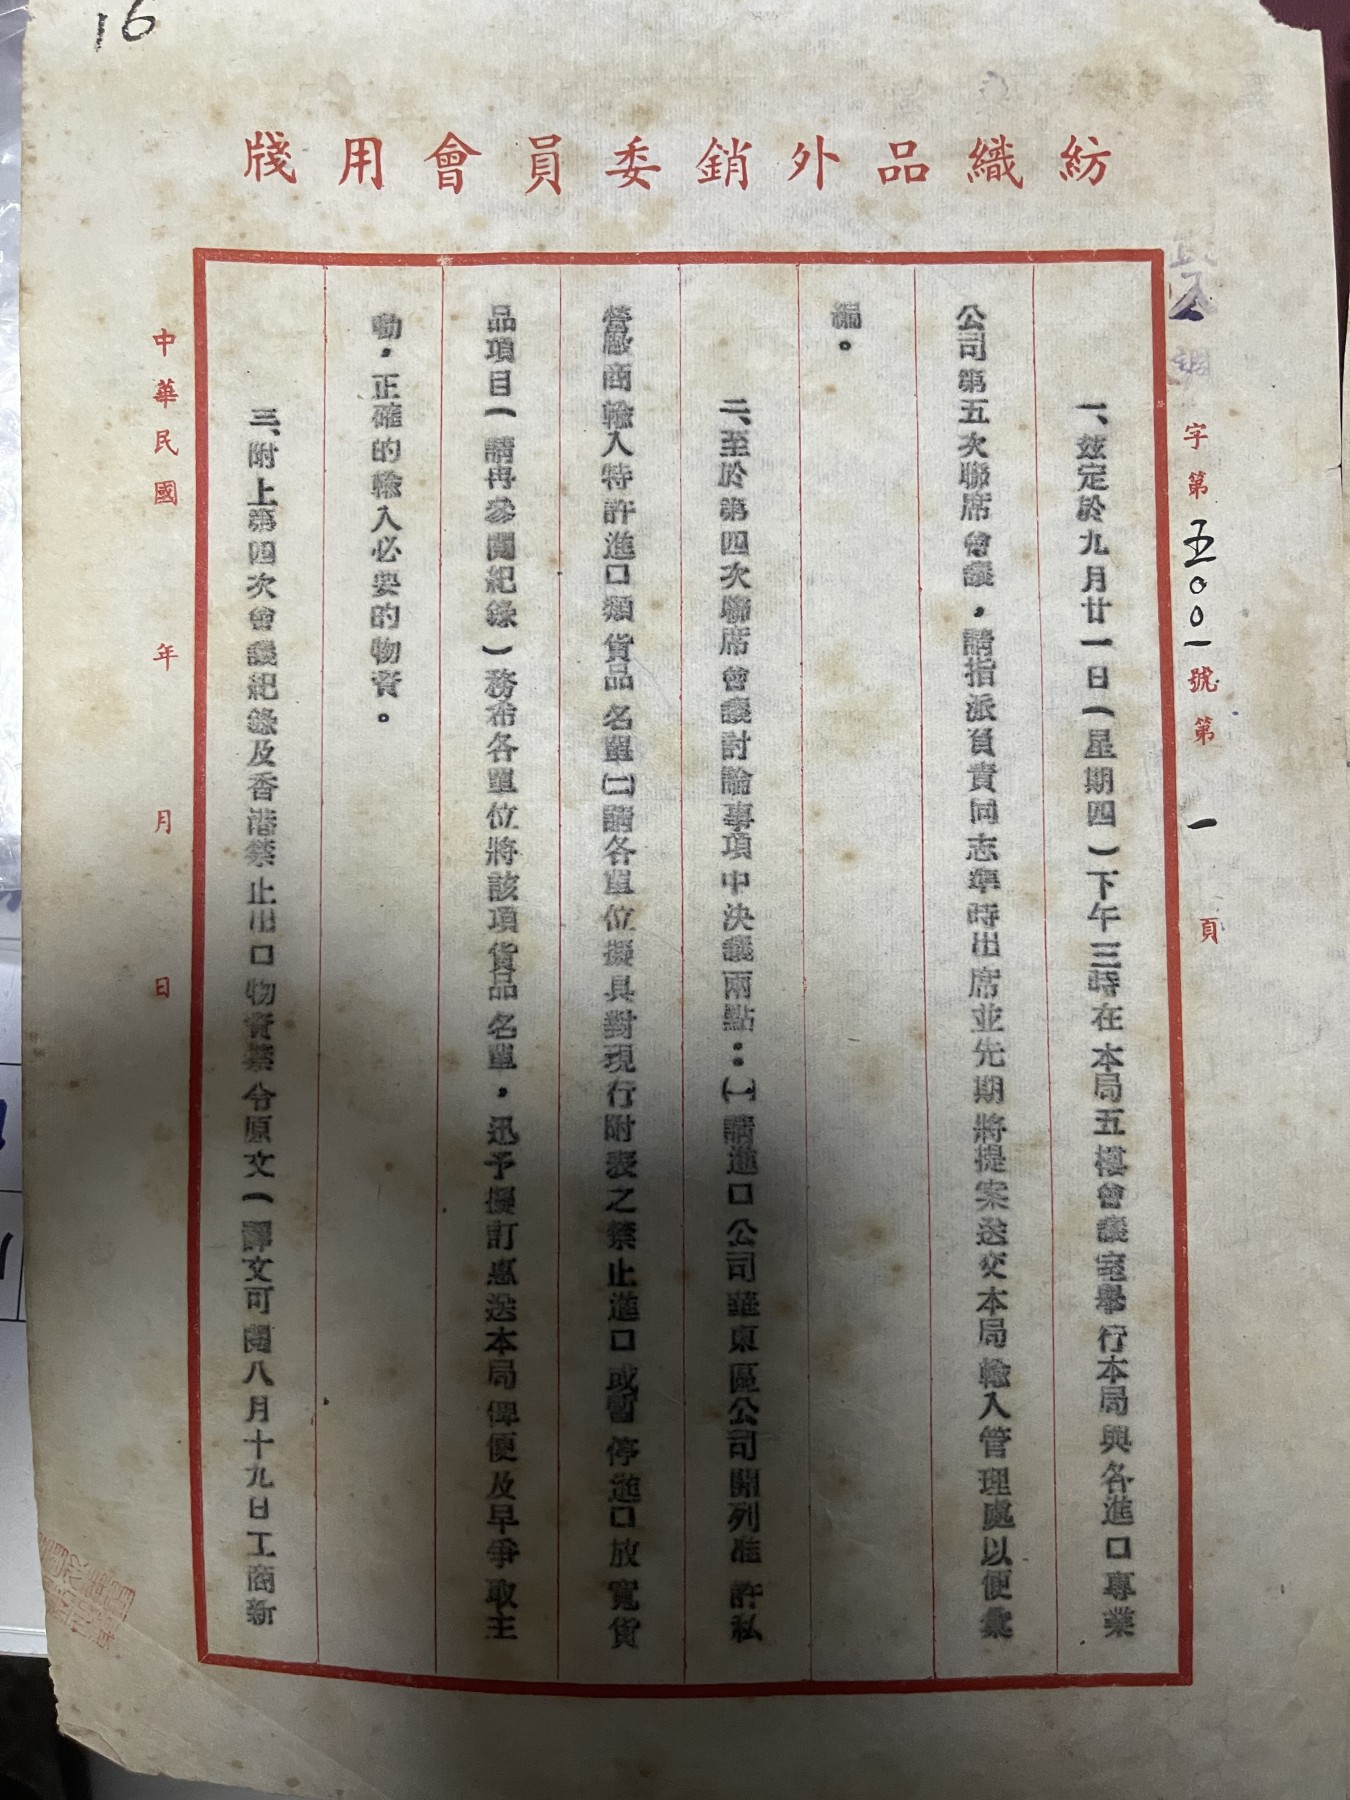 16
紡織品外銷委員會用牋
字第五〇〇一號第一頁
一、茲定於九月廿一日(星期四)下午三時在本局五樓會議室舉行本局與各進口專業
公司第五次聯席會議,請指派負責同志準時出席並先期將提案送交本局輸入管理處以便彙
編。
二、至於第四次聯席會議討論事項中決議兩點:㈠請進口公司華東區公司開列准許私
營廠商輸入特許進口類貨品名單㈡請各單位擬具對現行附表之禁止進口或暫停進口放寬貨
品項目(請再參閱紀錄)務希各單位將該項貨品名單,迅予擬訂惠送本局俾便及早爭取主
動,正確的輸入必要的物資。
三、附上第四次會議紀錄及香港禁止出口物資禁令原文(譯文可閱八月十九日工商新
中華民國 年 月 日